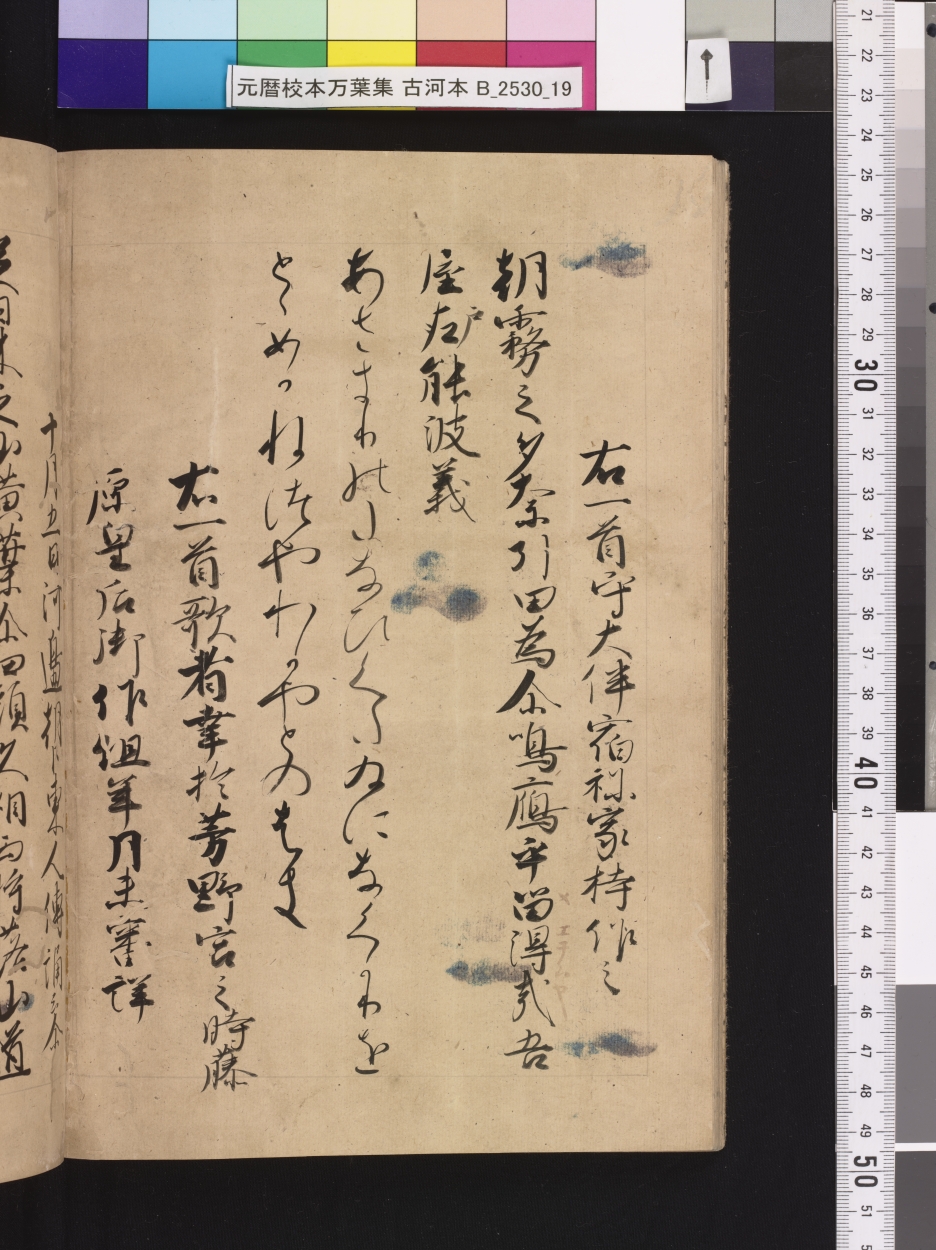 元暦校本万葉集 古河本 B_2530_19
右一首守大伴宿祢家持作之
朝霧之多奈引田為尓鳴鴈乎留得哉吾
屋戸能波義
あさきりのたなひくたゐになくかりを
とゝめかねつやわかやとのはき
右一首歌者幸於芳野宮之時藤
原皇后御作但年月未審詳
十月五日河邊朝臣東人傳誦云尓
足日木之山黄葉尓四頭久相而将落山道